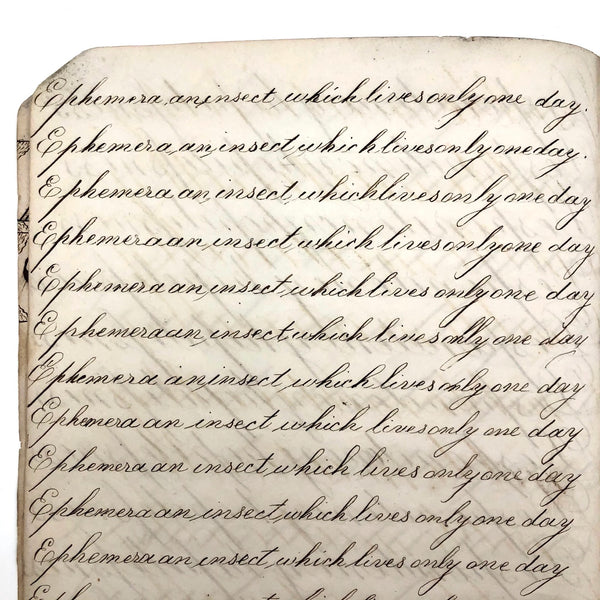 Ephemera, an, insect, which lives only one day.
Ephemera, an, insect, which lives only one day.
Ephemera an, insect, which lives only one day
Ephemera an, insect, which lives only one day
Ephemera an, insect, which lives only one day
Ephemera an, insect, which lives only one day
Ephemera an insect, which lives only one day
Ephemera an insect which lives only one day
Ephemera an insect, which lives only one day
Ephemera an, insect, which lives only one day
Ephemera an, insect, which lives only one day